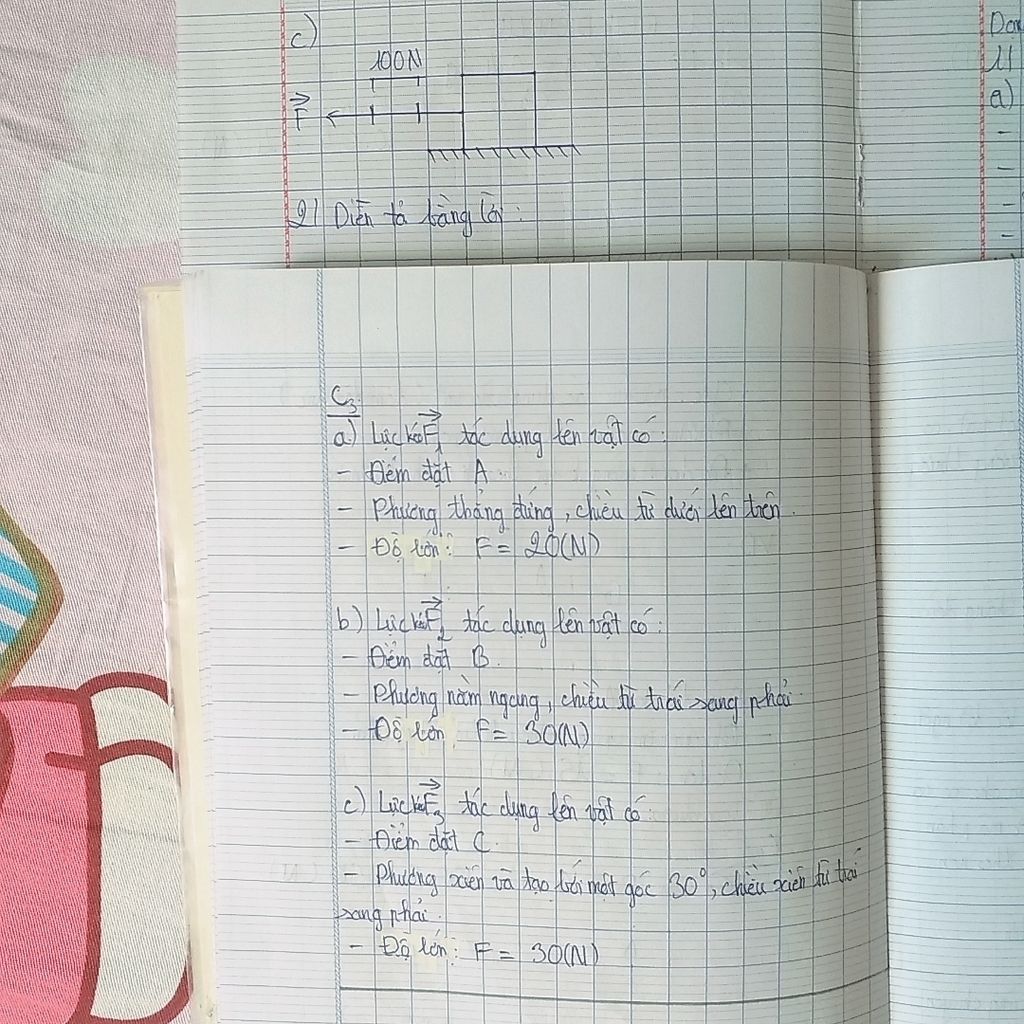 c)
100N
F
2/ Diễn tả bằng lời:
Dạn
1/
a)
C3
a) Lực kéo F1 tác dụng lên vật có:
- Điểm đặt A.
- Phương thẳng đứng, chiều từ dưới lên trên.
- Độ lớn: F = 20(N)
b) Lực kéo F2 tác dụng lên vật có:
- Điểm đặt B.
- Phương nằm ngang, chiều từ trái sang phải.
- Độ lớn: F = 30(N)
c) Lực kéo F3 tác dụng lên vật có:
- Điểm đặt C.
- Phương xiên và tạo bởi một góc 30°, chiều xiên từ trái
sang phải.
- Độ lớn: F = 30(N)